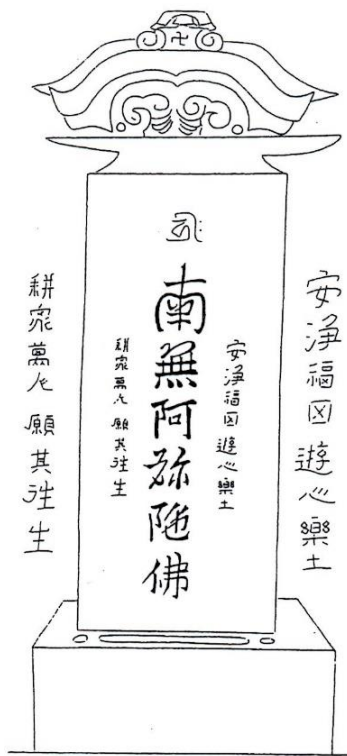 卍
安淨福 遊心樂土
安淨福 遊心樂土
南無阿弥陁佛
耕 萬人 願其往生
耕 萬人 願其往生